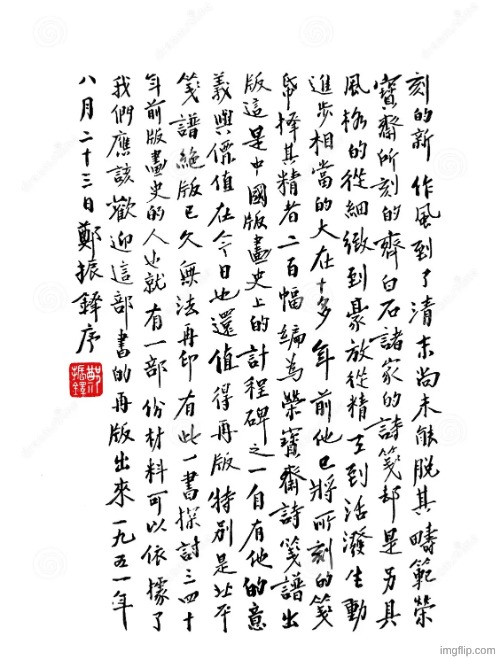 刻的新作風到了清末尚未能脫其疇範榮
寶齋所刻的齊白石諸家的詩箋却是另具
風格的從細緻到豪放從精工到活潑生動
進步相當的大在十多年前他已將所刻的箋
帋擇其精者二百幅編為榮寶齋詩箋譜出
版這是中國版畫史上的計程碑之一自有他的意
義與價值在今日也還值得再版特別是北平
箋譜絕版已久無法再印有此一書探討三四十
年前版畫史的人也就有一部份材料可以依據了
我們應該歡迎這部書的再版出來一九五一年
八月二十三日鄭振鐸序
imgflip.com